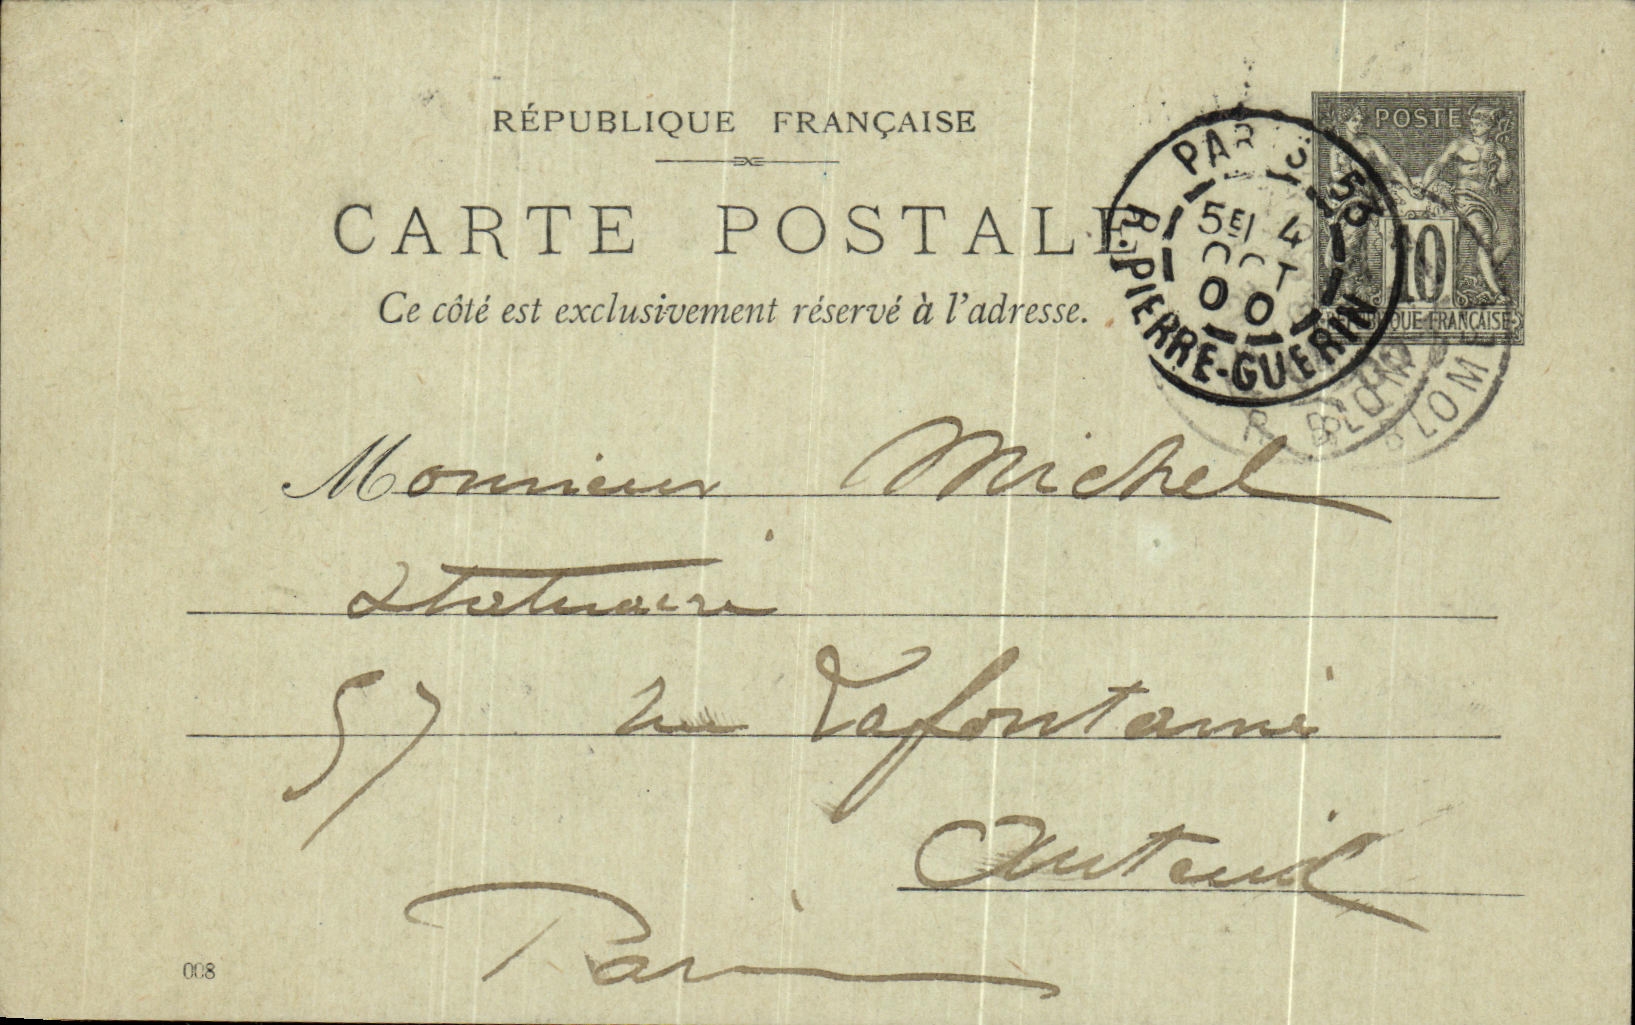 RÉPUBLIQUE FRANÇAISE
CARTE POSTALE
Ce côté est exclusivement réservé à l'adresse.
POSTE
10
RÉPUBLIQUE FRANÇAISE
PARIS 53
5E/ 4
OCT
00
R. PIERRE-GUERIN
Monsieur Michel
Statuaire
57 rue Lafontaine
Auteuil
Paris
008